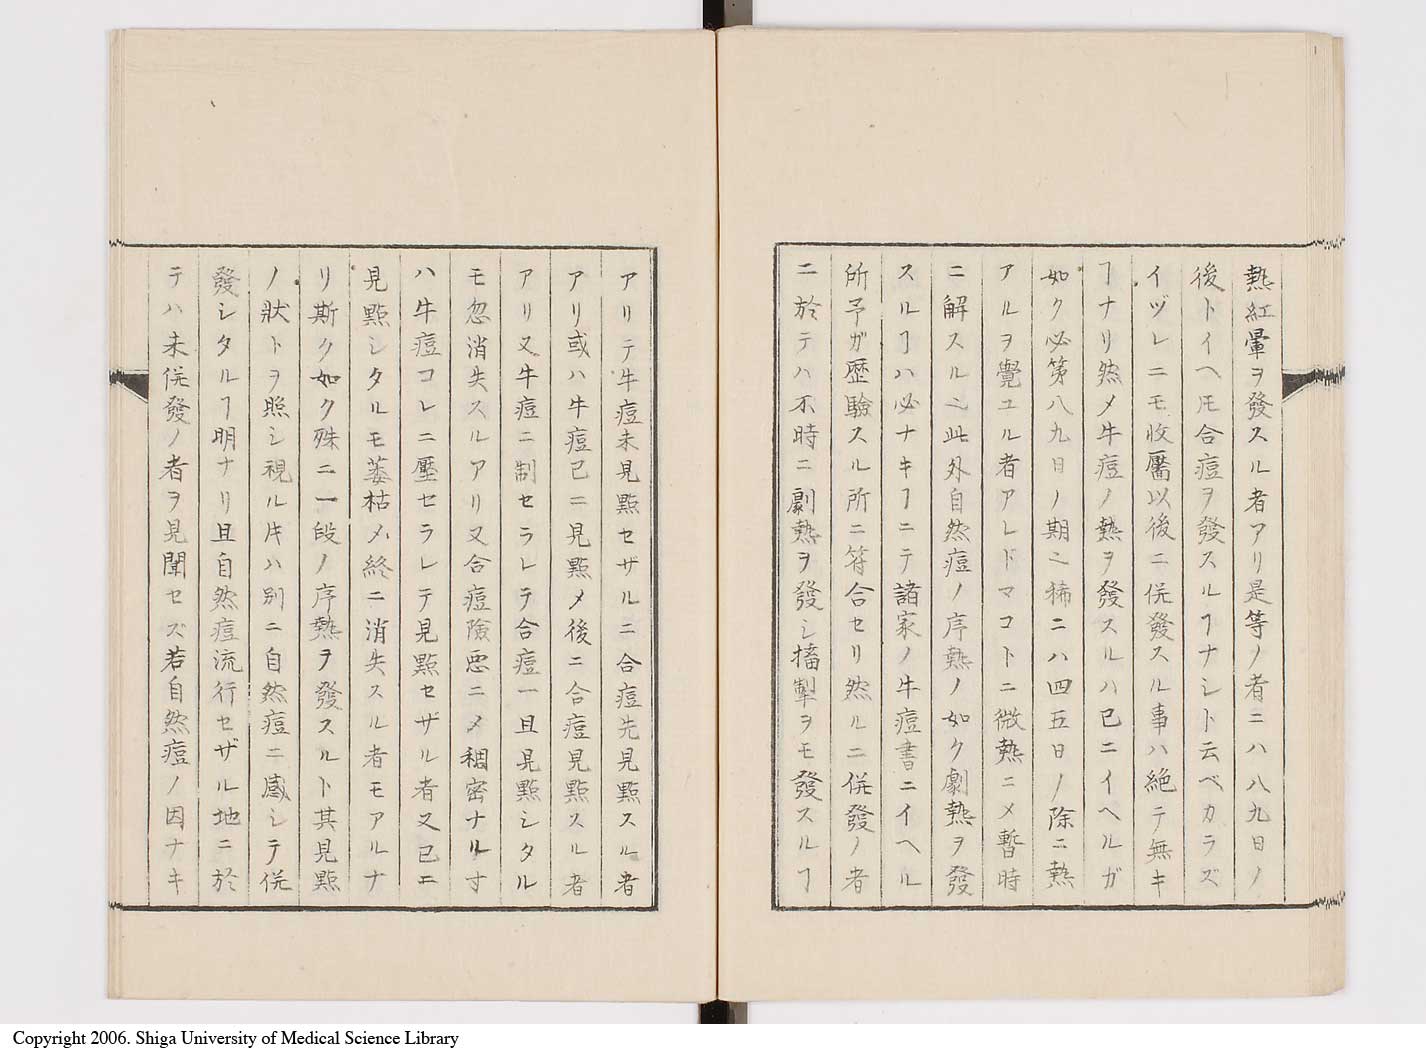 熱紅暈ヲ發スル者アリ是等ノ者ニハ八九日ノ
後トイヘ𪜈合痘ヲ發スルヿナシト云ベカラズ
イヅレニモ收靨以後ニ併發スル事ハ絶テ無キ
ヿナリ然メ牛痘ノ熱ヲ發スルハ已ニイヘルガ
如ク必第八九日ノ期之稀ニハ四五日ノ際ニ熱
アルヲ覺ユル者アレドマコトニ微熱ニメ暫時
ニ解スル之此外自然痘ノ序熱ノ如ク劇熱ヲ發
スルヿハ必ナキヿニテ諸家ノ牛痘書ニイヘル
所予ガ歴驗スル所ニ符合セリ然ルニ併發ノ者
ニ於テハ不時ニ劇熱ヲ發シ搐掣ヲモ發スルヿ
アリテ牛痘未見點セザルニ合痘先見點スル者
アリ或ハ牛痘已ニ見點メ後ニ合痘見點スル者
アリ又牛痘ニ制セラレテ合痘一旦見點シタル
モ忽消失スルアリ又合痘險惡ニメ稠密ナルす
ハ牛痘コレニ壓セラレテ見點セザル者又已ニ
見點シタルモ萎枯メ終ニ消失スル者モアルナ
リ斯ク如ク殊ニ一段ノ序熱ヲ發スルト其見點
ノ狀トヲ照シ視ル片ハ別ニ自然痘ニ感シテ併
發シタルヿ明ナリ且自然痘流行セザル地ニ於
テハ未併發ノ者ヲ見聞セズ若自然痘ノ因ナキ
Copyright 2006. Shiga University of Medical Science Library